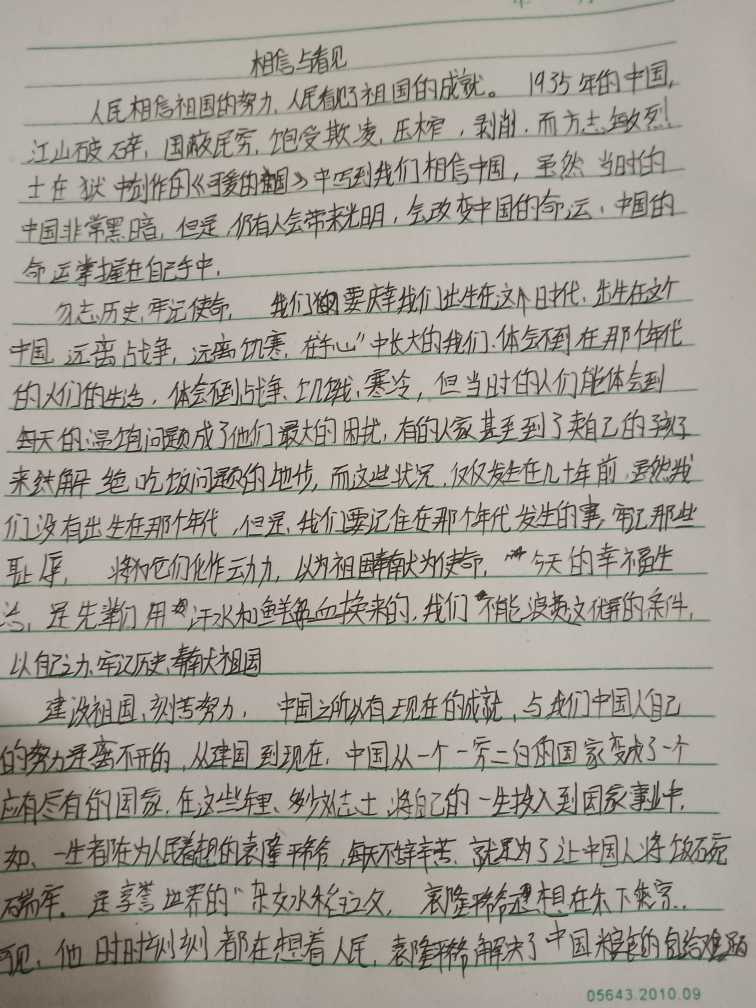 相信与看见
人民相信祖国的努力,人民看见了祖国的成就。 1935年的中国,
江山破碎,国蔽民穷,饱受欺凌,压榨,剥削,而方志敏烈
士在狱中创作的《可爱的中国》中写到我们相信中国,虽然当时的
中国非常黑暗,但是,仍有人会带来光明,会改变中国的命运,中国的
命运掌握在自己手中。
勿忘历史,牢记使命, 我们要庆幸我们出生在这个时代,出生在这个
中国,远离占战争,远离饥寒,在"中长大的我们,体会不到在那个年代
的人们的生活,体会不到战争、饥饿、寒冷,但当时的人们能体会到
每天的温饱问题成了他们最大的困扰,有的人家甚至到了卖自己的孩子
来解绝吃饭问题的地步,而这些状况,仅仅发生在几十年前,虽然我
们没有出生在那个年代,但是,我们要记住在那个年代发生的事,牢记那些
耻辱, 将它们化作动力,以为祖国奉献为使命, 今天的幸福生
活,是先辈们用汗水和鲜血换来的,我们不能浪费这优渥的条件,
以自己之力,牢记历史,奉献祖国
建设祖国,刻苦努力, 中国之所以有现在的成就,与我们中国人自己
的努力是离不开的,从建国到现在,中国从一个一穷二白的国家变成了一个
应有尽有的国家,在这些年里,多少志士,将自己的一生投入到国家事业中,
如,一生都在为人民着想的袁隆平爷爷,每天不辞辛苦,就是为了让中国人将饭碗
端牢,是享誉世界的"杂交水稻之父, 袁隆平爷爷想在禾下乘凉..
可见,他时时刻刻都在想着人民,袁隆平爷爷解决了中国粮食的自给难题
05643.2010.09